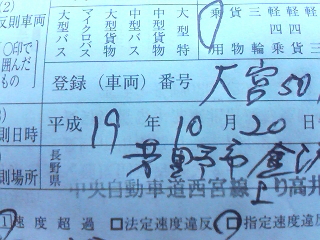 (2)
反則車両
(〇印で
囲んだ
もの)
大型バス マイクロバス 大型貨物 中型バス 中型貨物 大特 乗用 貨物 三輪 軽四乗 軽四貨
登録(車両)番号 大宮50
則日時 平成19年10月20日
則場所 長野県 茅野市金沢
中央自動車道西宮線上り高井
1速度超過 □法定速度違反 □指定速度違